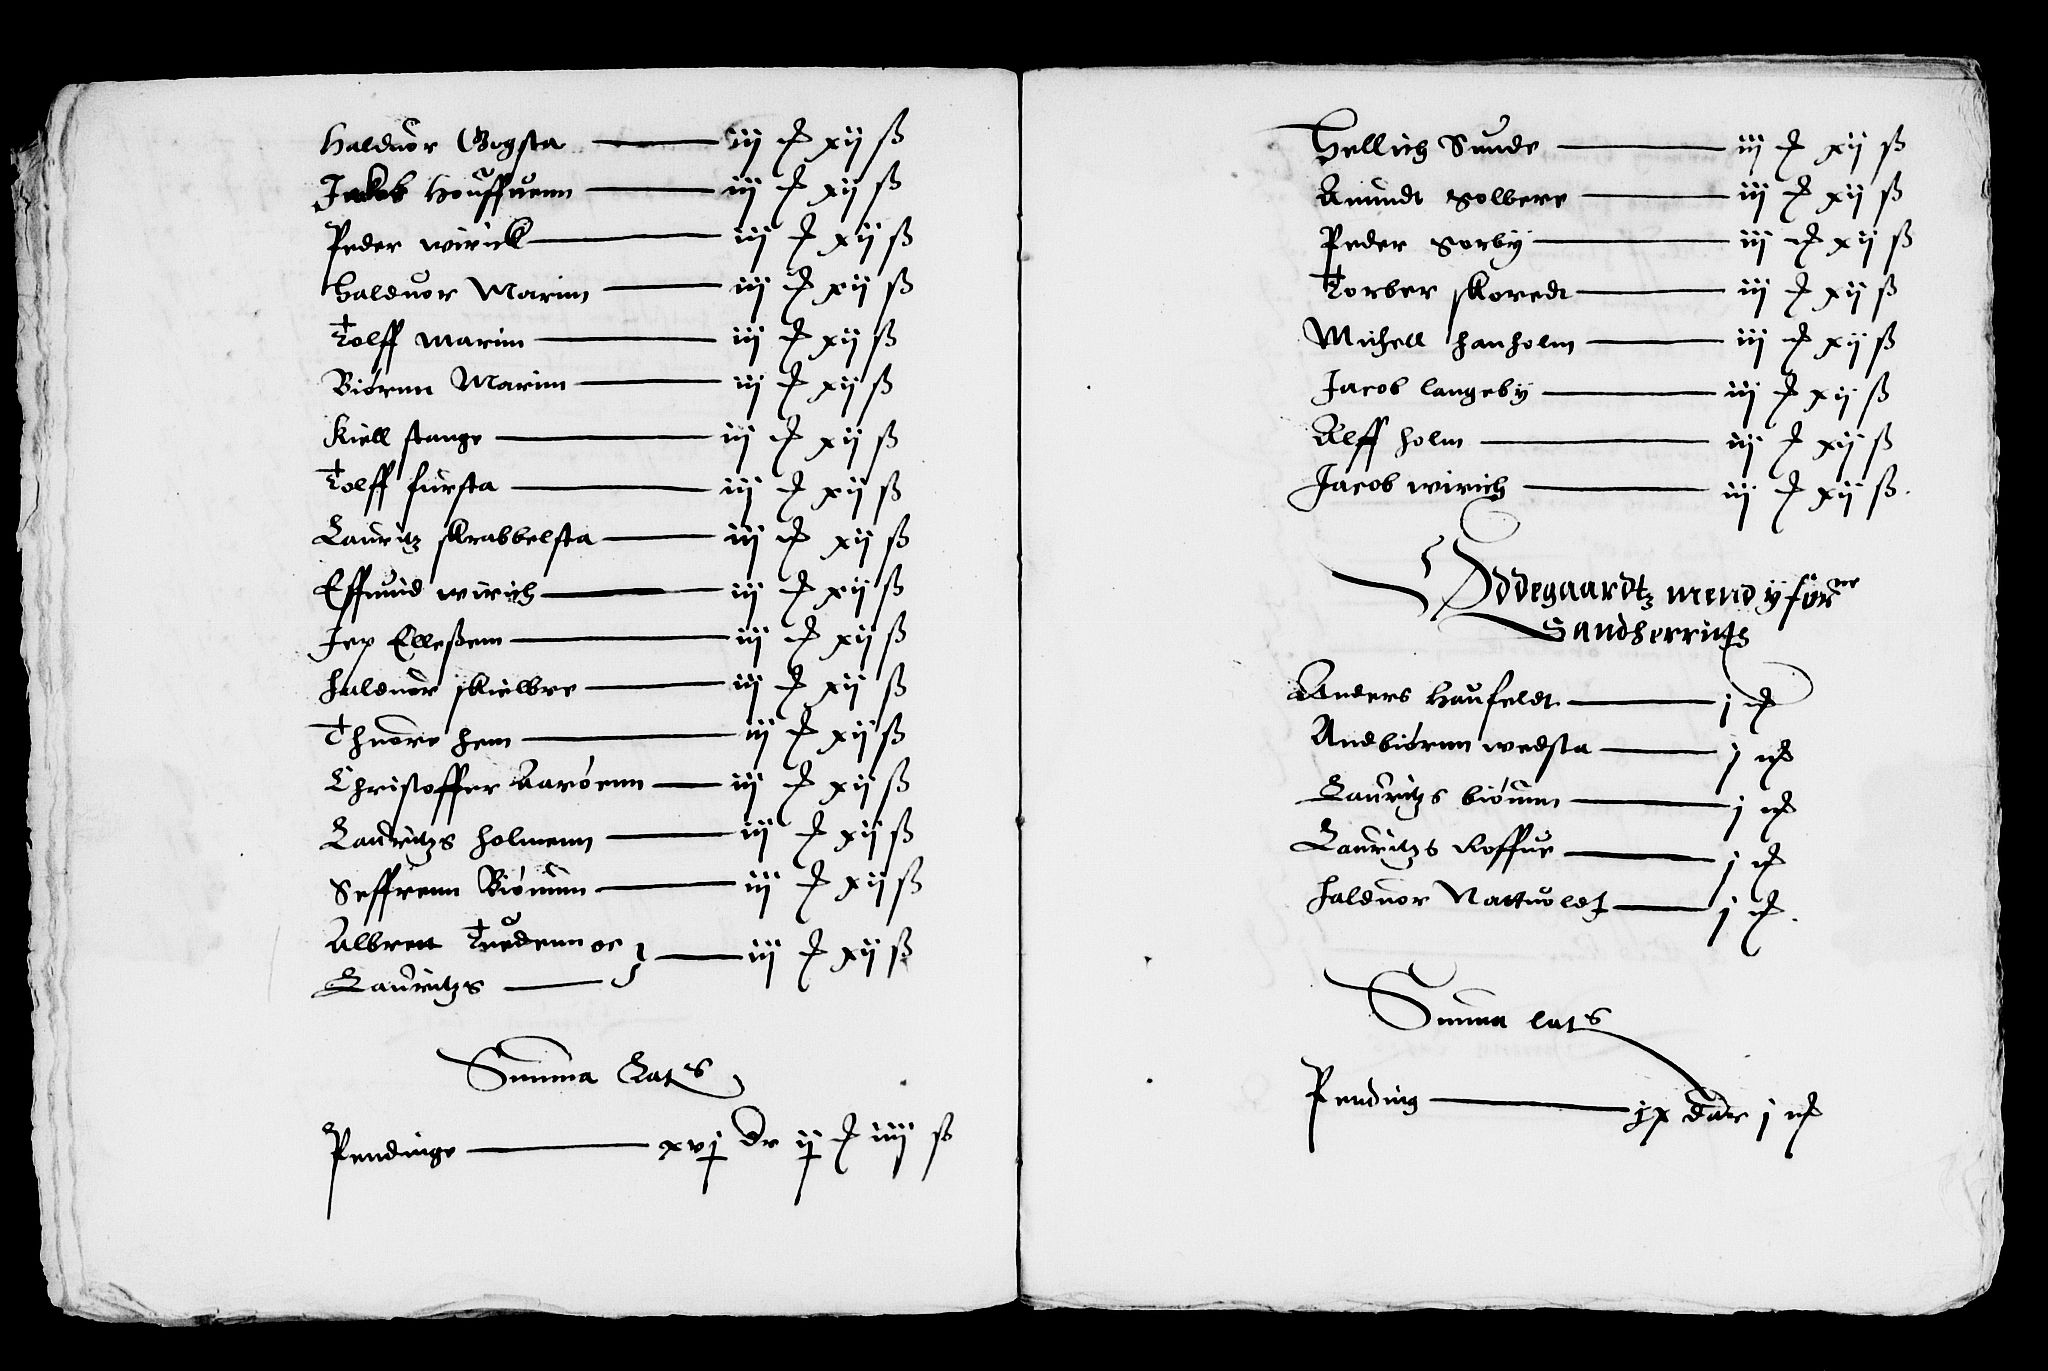 Halduor Gogsta ——— iij ɱ xij ß
Jakob Houffuenn ——— iij ɱ xij ß
Peder wirick ——— iij ɱ xij ß
Halduor Marim ——— iij ɱ xij ß
Tolff Marim ——— iij ɱ xij ß
Biörnn Marim ——— iij ɱ xij ß
Kiell stange ——— iij ɱ xij ß
Tolff fursta ——— iij ɱ xij ß
Lauritz skrabbelsta ——— iij ɱ xij ß
Effuind wirich ——— iij ɱ xij ß
Jep Elleßem ——— iij ɱ xij ß
Halduor skielbre ——— iij ɱ xij ß
Thuore hem ——— iij ɱ xij ß
Christoffer Aaröenn ——— iij ɱ xij ß
Lauritzs holmenn ——— iij ɱ xij ß
Seffrenn Biönnn ——— iij ɱ xij ß
Albrett Tuedenn oc
Lauritzs ——— iij ɱ xij ß
Summa Lats
Pendinge ——— xvj dr ij ɱ iiij ß
Hellich Sunde ——— iij ɱ xij ß
Amundt Solbere ——— iij ɱ xij ß
Peder Sorby ——— iij ɱ xij ß
Torber skoredt ——— iij ɱ xij ß
Michell hanholm ——— iij ɱ xij ß
Jacob langeby ——— iij ɱ xij ß
Alff holm ——— iij ɱ xij ß
Jacob wirich ——— iij ɱ xij ß.
Øddegaardtz mend y forne
Sandherritz
Anders Haufeldt ——— j ɱ
Andbiörnn wedsta ——— j ɱ
Lauritzs biönnn ——— j ɱ
Lauritzs Roffue ——— j ɱ
Halduor Nattuoldt ——— j ɱ.
Summa lats
Pending ——— ix dar j ɱ